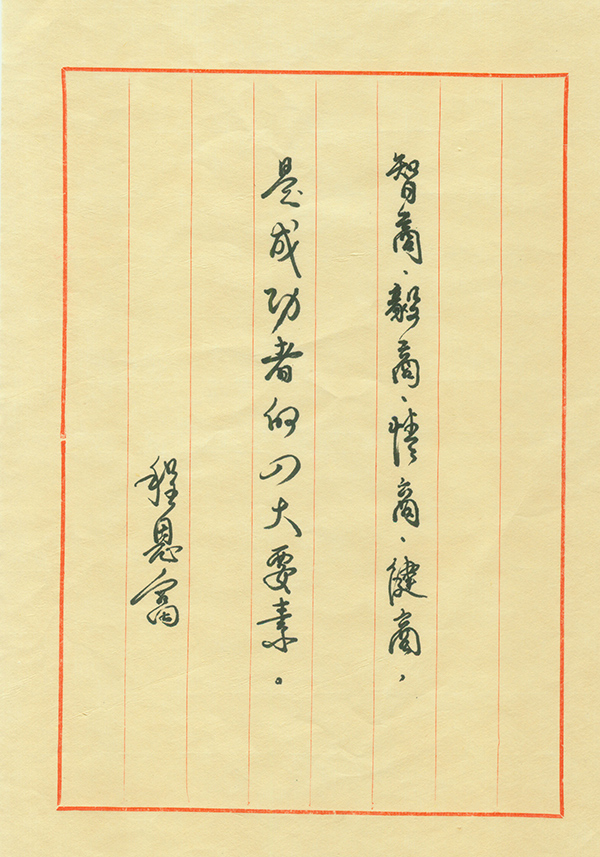 智商、毅商、情商、健商，
是成功者的四大要素。
程恩富